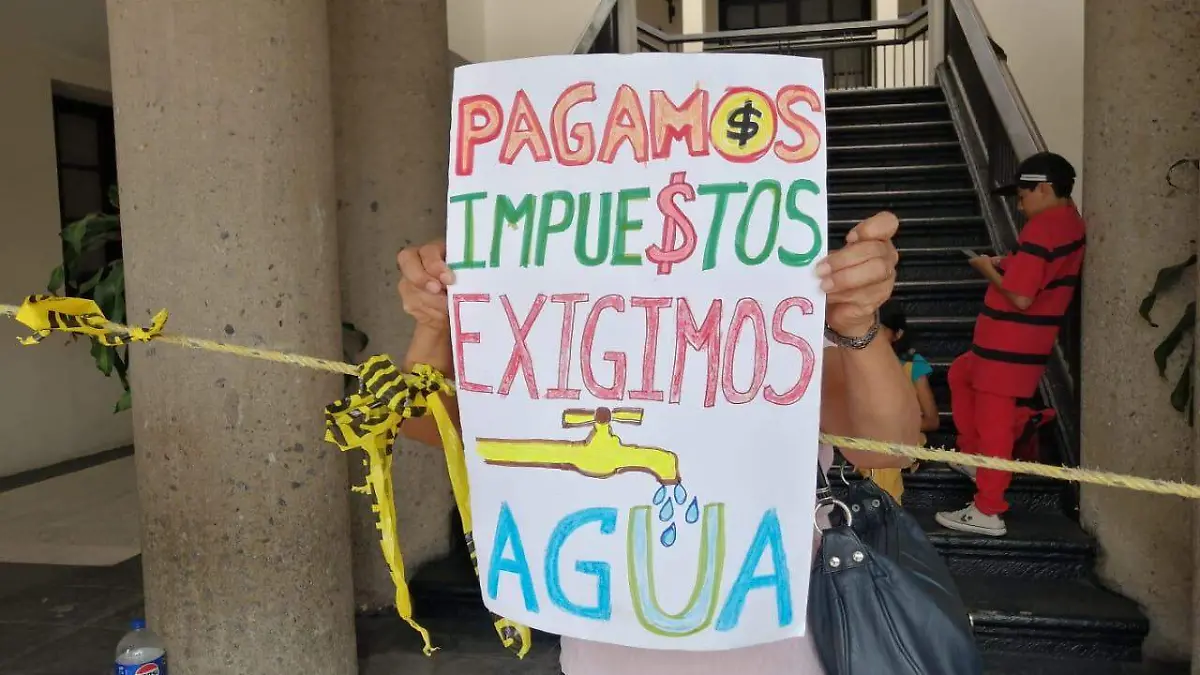 PAGAMO$S
IMPUE$TOS
EXIGIMOS
AGUA
pepsi